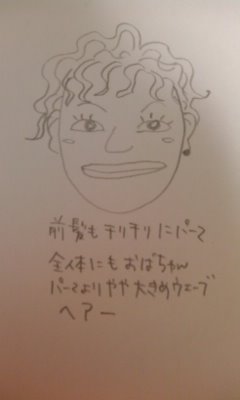 前髪もチリチリにパーマ
全体にもおばちゃん
パーマよりやや大きめウェーブ
ヘアー